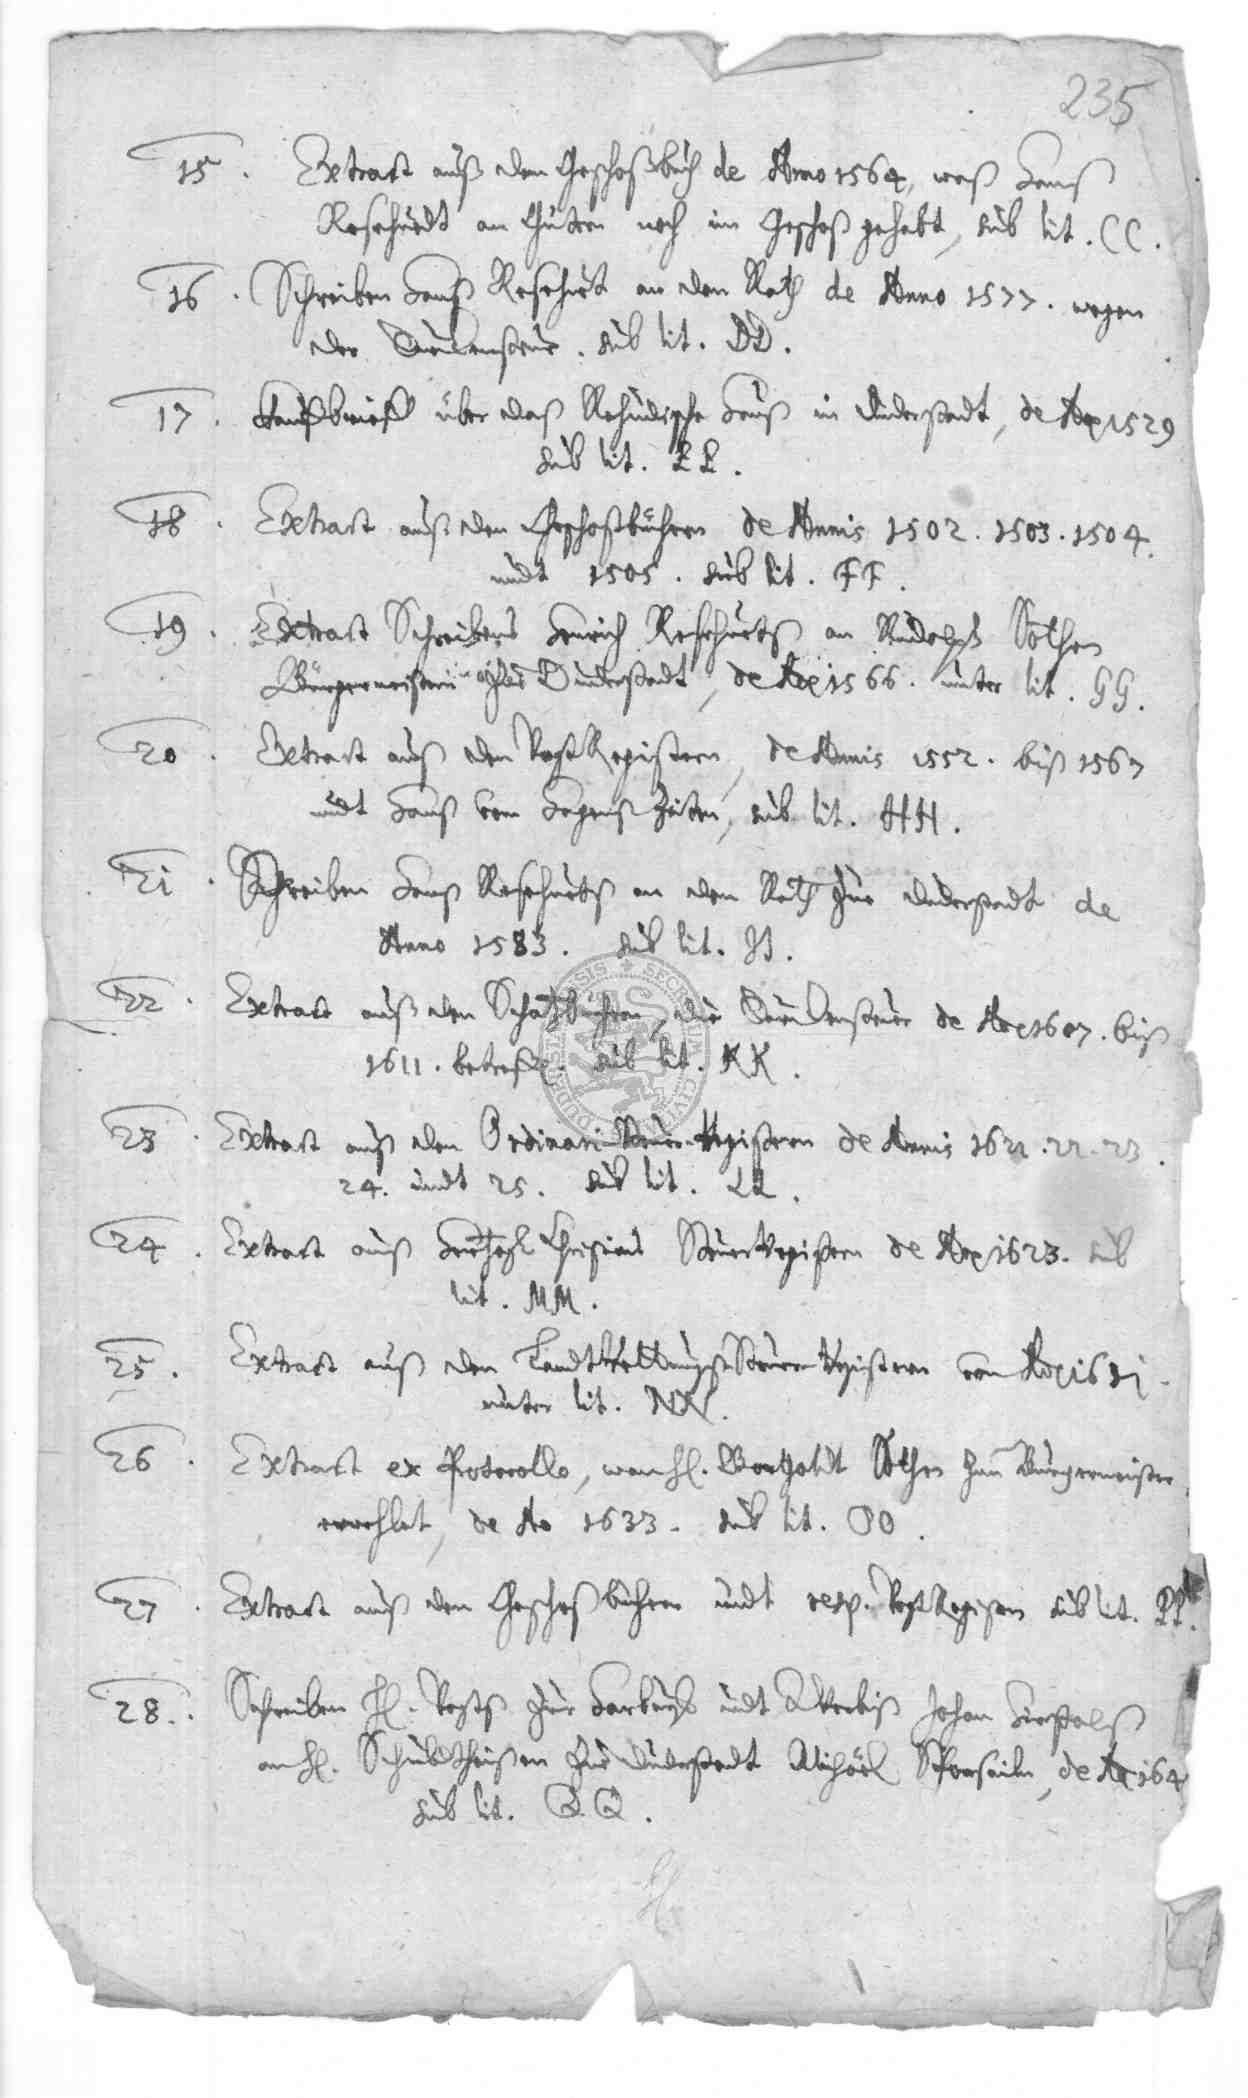 235
15. Extract auß dem Geschoßbuch de Anno 1564, waß Hanß
Reschuedt an Gütern noch im Geschoß gehabt, sub lit. CC.
16. Schreiben Hanß Reschuet an den Rath de Anno 1577. wegen
der Türckensteur. sub lit. DD.
17. Kauffbrieff über daß Rehudische Hauß in Duderstadt, de Ao 1529
sub lit. EE.
18. Extract auß den Geschoßbüchern de Annis 1502. 1503. 1504.
undt 1505. sub lit. FF.
19. Extract Schreibens Henrich Reschuets an Rudolph Sothen
Bürgermeistern Duderstadt, de Ao 1566. unter lit. GG.
20. Extract auß den Registern, de Annis 1552. biß 1567
undt Hanß von Zeiten, sub lit. HH.
21. Schreiben Hanß Reschuets an den Rath zur Duderstadt de
Anno 1583. sub lit. II.
22. Extract auß den Schatzbüchern, die Türckensteur de Ao 1607. biß
1611. betreff. sub lit. KK.
23. Extract auß den Ordinari-Steur-Registern de Annis 1621. 22. 23.
24. undt 25. sub lit. LL.
24. Extract auß Steur Registern de Ao 1623. sub
lit. MM.
25. Extract auß den Landt Steur Registern von Ao 1631.
unter lit. NN.
26. Extract ex Protocollo, wan H. Bartholdt Sothen zum Bürgermeister
erwehlet, de Ao 1633. sub lit. OO.
27. Extract auß den Geschoßbüchern undt resp. Registern sub lit. PP.
28. Schreiben H. zur undt Johan
an H. Schuldtheißen zur Duderstadt Michäel, de Ao 164
sub lit. QQ.
SECRETUM CIVITATIS DUDERSTADENSIS